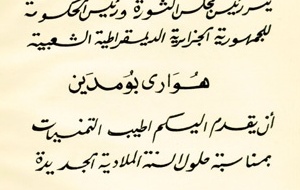 يسر رئيس مجلس الثورة ورئيس الحكومة
للجمهورية الجزائرية الديمقراطية الشعبية
هواري بومدين
أن يقدم اليكم اطيب التمنيات
بمناسبة حلول السنة الميلادية الجديدة